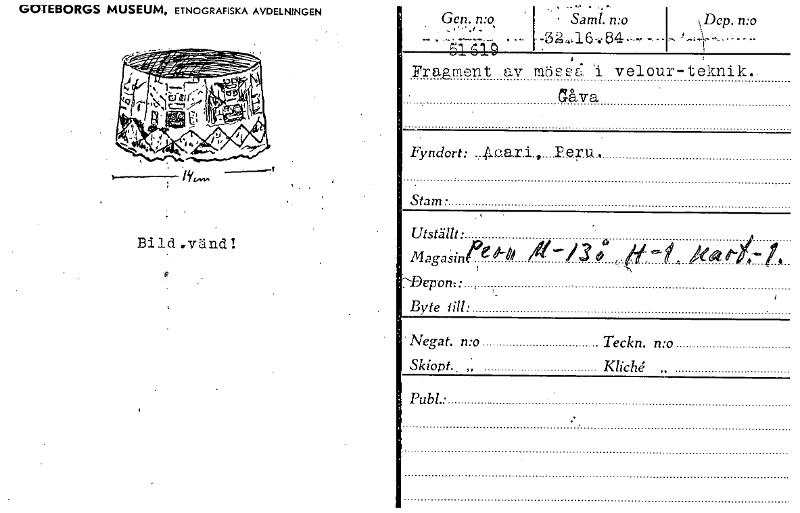 GÖTEBORGS MUSEUM, ETNOGRAFISKA AVDELNINGEN
14 cm
Bild vänd!
Gen. n:o Saml. n:o Dep. n:o
51619 32.16.84
Fragment av mössa i velour-teknik.
Gåva
Fyndort: Acari, Peru.
Stam:
Utställt:
Magasin: Peru H-1 Kart.-1.
Depon.:
Byte till:
Negat. n:o Teckn. n:o
Skiopt. „ Kliché „
Publ.: